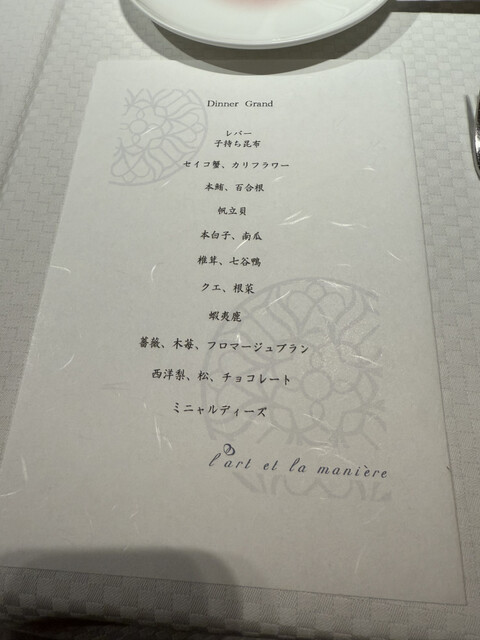 Dinner Grand
レバー
子持ち昆布
セイコ蟹、カリフラワー
本鮪、百合根
帆立貝
本白子、南瓜
椎茸、七谷鴨
クエ、根菜
蝦夷鹿
薔薇、木苺、フロマージュブラン
西洋梨、松、チョコレート
ミニャルディーズ
l'art et la manière